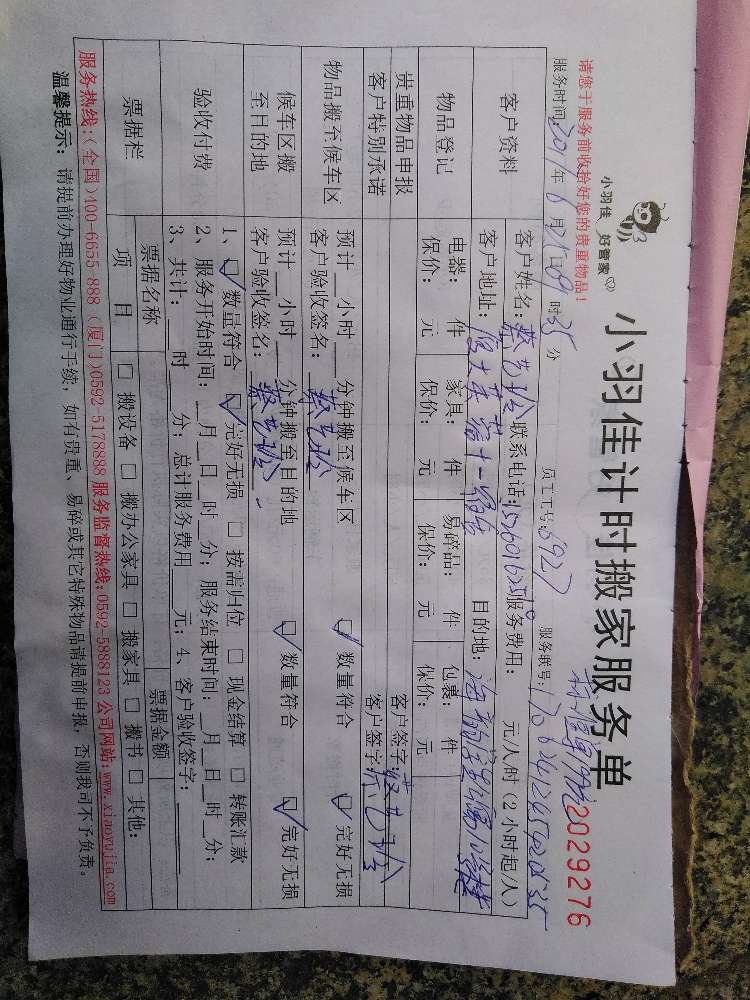 小羽佳 好管家
小羽佳计时搬家服务单
2029276
请您于服务前收拾好您的贵重物品!
服务时间: 年6月 日09时35分 员工工号:5927 服务联号:
客户资料 客户姓名: 联系电话: 服务费用: 元/人/时(2小时起/人)
客户地址: 目的地:
物品登记 电器: 件 家具: 件 易碎品: 件 包裹: 件
保价: 元 保价: 元 保价: 元 保价: 元
贵重物品申报 客户签字:
客户特别承诺 客户签字:
物品搬至候车区 预计__小时__分钟搬至候车区 ☑数量符合 ☑完好无损
客户验收签名:
候车区搬至目的地 预计__小时__分钟搬至目的地 ☑数量符合 ☑完好无损
客户验收签名:
验收付费 1、☑数量符合 ☑完好无损 □按需归位 □现金结算 □转账汇款
2、服务开始时间:__月__日__时__分; 服务结束时间:__月__日__时__分;
3、共计:__时__分; 总计服务费用__元; 4、客户验收签字:
票据栏 票据名称 票据金额
项目 □搬设备 □搬办公家具 □搬家具 □搬书 □其他:
服务热线:(全国)400-6655-888 (厦门)0592-5178888 服务监督热线:0592-5888123 公司网站:www.xiaoyujia.com
温馨提示: 请提前办理好物业通行手续, 如有贵重、易碎或其它特殊物品请提前申报, 否则我司不予负责。